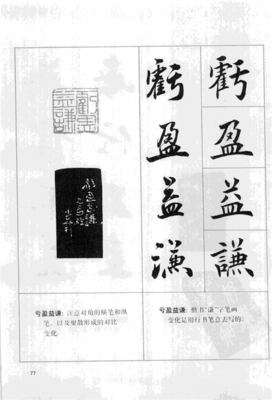 虧盈益謙
虧盈益謙
亏盈益谦：注意对角的横笔和纵
笔，以及聚散形成的对比
变化。
亏盈益谦：楷书“谦”字笔画
变化是用行书笔意去写的。
77